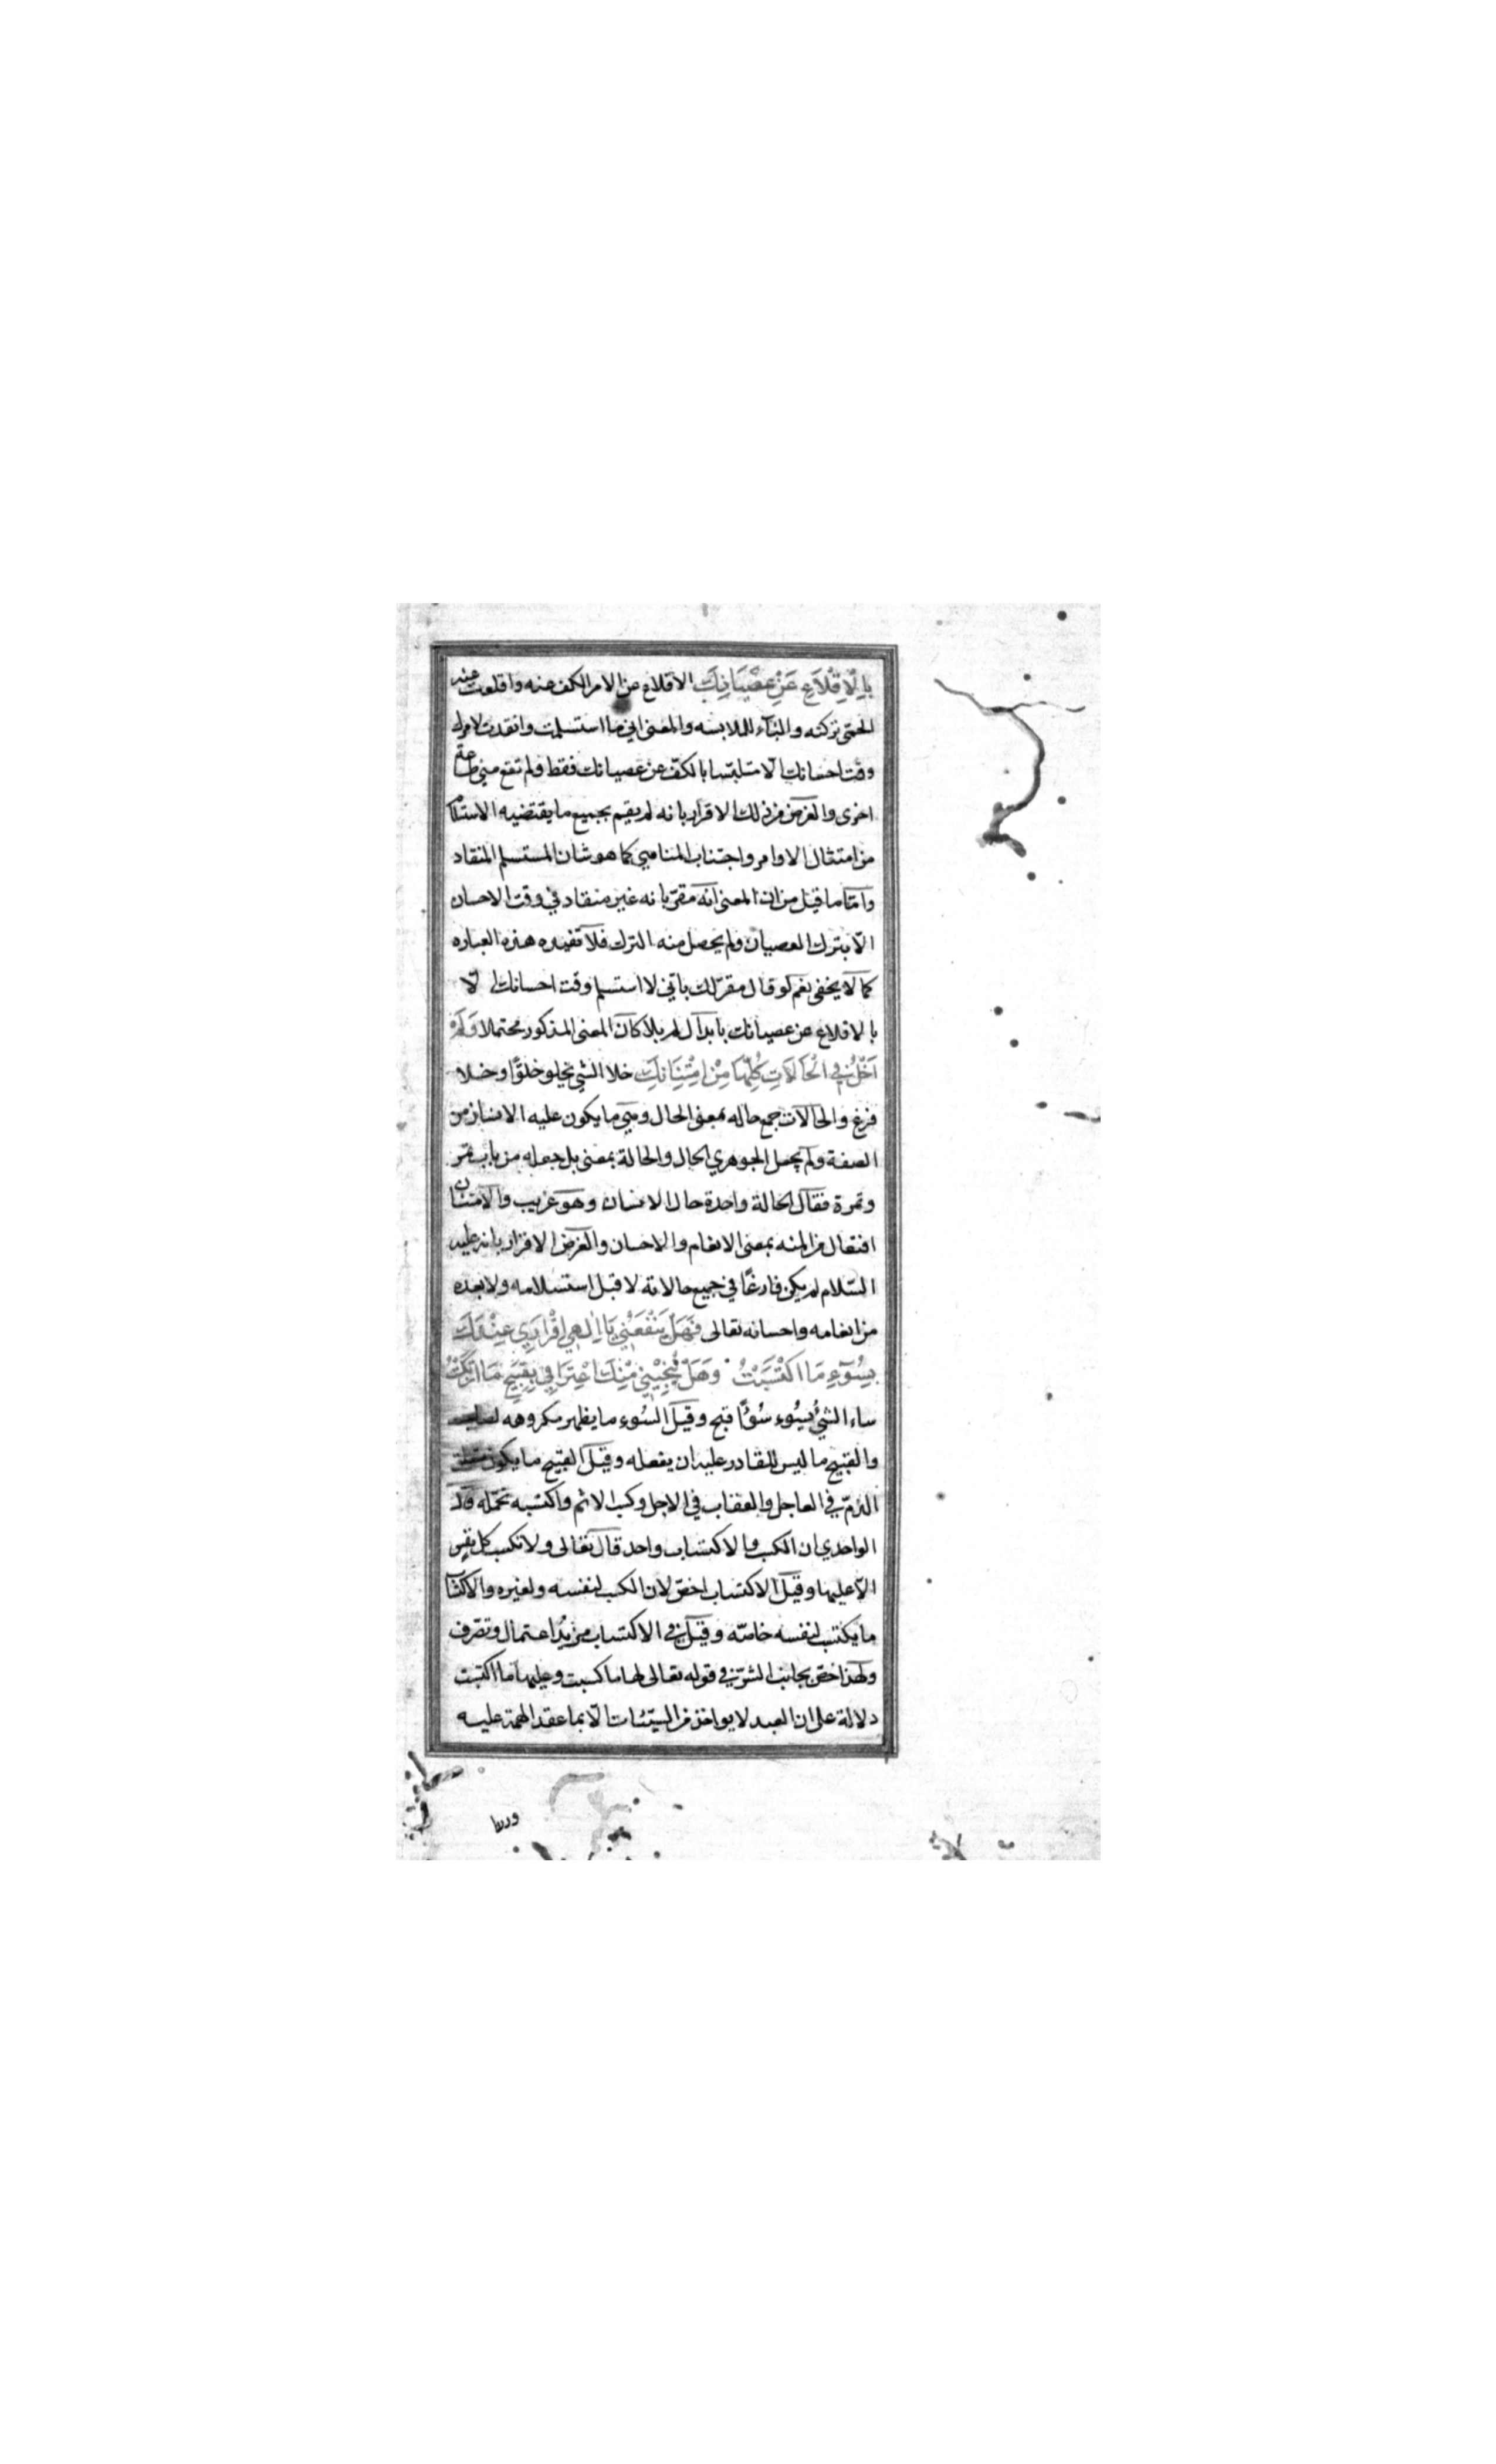 بِالْاِقْلَاعِ عَنْ عِصْيَانِكَ الاقلاع عن الامر الكف عنه واقلعت عنه
الحمّى تركته والبآء للملابسه والمعنى اني ما استسلمت وانقدت لامرك
وقت احسانك الّا متلبّسا بالكفّ عن عصيانك فقط ولم تقع مني طاعة
اخرى والغرض من ذلك الاقرار بانه لم يقم بجميع ما يقتضيه الاستسلام
من امتثال الاوامر واجتناب المناهي كما هو شان المستسلم المنقاد
وامّا ما قيل من ان المعنى انه مقرّ بانه غير منقاد في وقت الاحسان
الّا بترك العصيان ولم يحصل منه الترك فلا تفيده هذه العباره
كما لا يخفى نعم لو قال مقرّ لك باني لا استسلم وقت احسانك الّا
بالاقلاع عن عصيانك بابدال لم بلا كان المعنى المذكور محتملا وَلَمْ
اَخْلُ فِي الْحَالَاتِ كُلِّهَا مِنْ اِمْتِنَانِكَ خلا الشي يخلو خلوًّا وخلا
فرغ والحالات جمع حاله بمعنى الحال وهي ما يكون عليه الانسان من
الصفة ولم يجعل الجوهري الحال والحالة بمعنى بل جعله من باب تمر
وتمرة فقال الحالة واحدة حال الانسان وهو غريب والامتنان
افتعال من المنه بمعنى الانعام والاحسان والغرض الاقرار بانه عليه
السّلام لم يكن فارغًا في جميع حالاته لا قبل استسلامه ولا بعده
من انعامه واحسانه تعالى فَهَلْ يَنْفَعُنِي يَا اِلٰهِي اِقْرَارِي عِنْدَكَ
بِسُوٓءِ مَا اكْتَسَبْتُ وَهَلْ يُنْجِيْنِي مِنْكَ اعْتِرَافِي بِقَبِيْحِ مَا ارْتَكَبْتُ
ساء الشيُّ يسُوء سُوْءًا قبح وقيل السُوء ما يظهر مكروهه لصاحبه
والقبيح ما ليس للقادر عليه ان يفعله وقيل القبيح ما يكون متعلق
الذمّ في العاجل والعقاب في الاجل وكسب الاثم واكتسبه تحمّله قال
الواحدي ان الكسب والاكتساب واحد قال تعالى ولا تكسب كل نفس
الّا عليها وقيل الاكتساب اخصّ لان الكسب لنفسه ولغيره والاكتساب
ما يكتسب لنفسه خاصّه وقيل في الاكتساب مزيدُ اعتمال وتصرّف
ولهذا خصّ بجانب الشرّ في قوله تعالى لها ما كسبت وعليها ما اكتسبت
دلالة على ان العبد لا يواخذ من السيّئات الّا بما عقد الهمة عليه